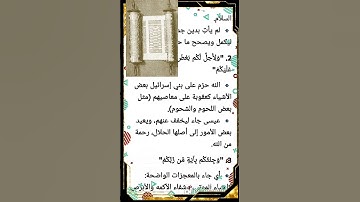 السلام.
لم يأتِ بدين
ليُكمل ويصحح ما
2. "وَلِأُحِلَّ لَكُم بَعْضَ
عَلَيْكُمْ"
الله حرّم على بني إسرائيل بعض
الأشياء كعقوبة على معاصيهم (مثل
بعض اللحوم والشحوم).
عيسى جاء ليخفف عنهم، ويعيد
بعض الأمور إلى أصلها الحلال، رحمة
من الله.
3. "وَجِئْتُكُم بِآيَةٍ مِّن رَّبِّكُمْ"
أي جاء بالمعجزات الواضحة:
شفاء الأكمه والأبرص